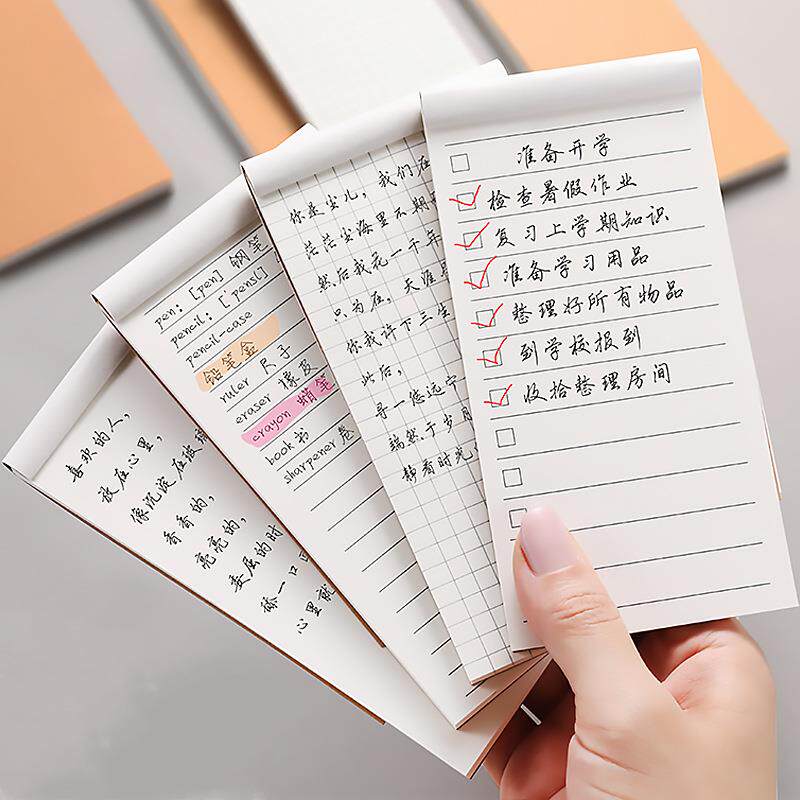 喜欢的人,
放在心里,
像沉淀在玻璃
香香的,
亮亮的,
委屈的时
舔一口
心里就
pen: [pen] 钢笔
pencil: ['pens(
pencil-case
铅笔盒
ruler 尺子
eraser 橡皮
crayon 蜡笔
book 书
sharpener 卷
你是尘儿, 我们在
茫茫尘海里不期
然后我花一千年
只为在, 天涯
你我许下三生
此后,
寻一处远宁
端然于岁月
静看时光
准备开学
检查暑假作业
复习上学期知识
准备学习用品
整理好所有物品
到学校报到
收拾整理房间